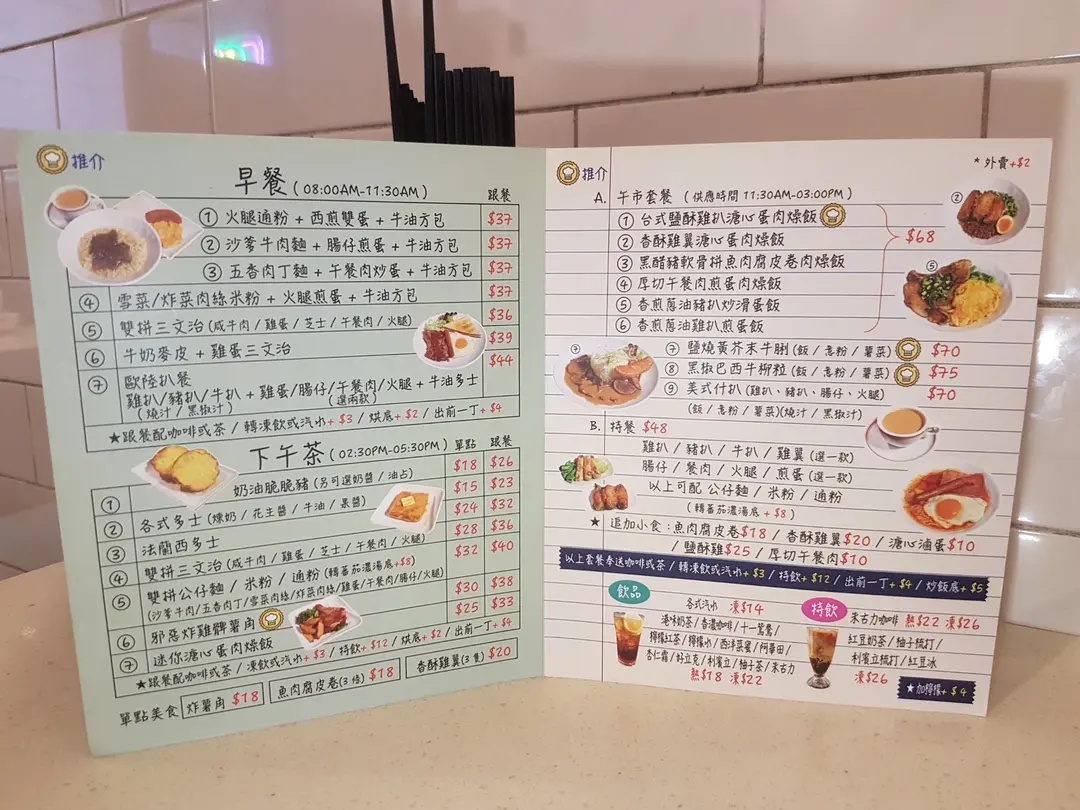 推介
早餐 (08:00AM-11:30AM)
跟餐
① 火腿通粉 + 西煎雙蛋 + 牛油方包 $37
② 沙爹牛肉麵 + 腸仔煎蛋 + 牛油方包 $37
③ 五香肉丁麵 + 午餐肉炒蛋 + 牛油方包 $37
④ 雪菜/炸菜肉絲米粉 + 火腿煎蛋 + 牛油方包 $37
⑤ 雙拼三文治 (咸牛肉 / 雞蛋 / 芝士 / 午餐肉 / 火腿) $36
⑥ 牛奶麥皮 + 雞蛋三文治 $39
⑦ 歐陸扒餐 $44
雞扒/豬扒/牛扒 + 雞蛋/腸仔/午餐肉/火腿 + 牛油多士
(燒汁 / 黑椒汁) (選兩款)
★跟餐配咖啡或茶 / 轉凍飲或汽水+ $3 / 烘底+ $2 / 出前一丁+ $4
下午茶 (02:30PM-05:30PM) 單點 跟餐
① 奶油脆脆豬 (另可選奶醬 / 油占) $18 $26
② 各式多士 (煉奶 / 花生醬 / 牛油 / 果醬) $15 $23
③ 法蘭西多士 $24 $32
④ 雙拼三文治 (咸牛肉 / 雞蛋 / 芝士 / 午餐肉 / 火腿) $28 $36
⑤ 雙拼公仔麵 / 米粉 / 通粉 (轉蕃茄濃湯底+$8) $32 $40
(沙爹牛肉/五香肉丁/雪菜肉絲/炸菜肉絲/雞蛋/午餐肉/腸仔/火腿)
⑥ 邪惡炸雞髀薯角 $30 $38
⑦ 迷你溏心蛋肉燥飯 $25 $33
★跟餐配咖啡或茶 / 凍飲或汽水+ $3 / 特飲+ $12 / 烘底+ $2 / 出前一丁+ $4
單點美食 炸薯角 $18 魚肉腐皮卷(3條) $18 香酥雞翼(3隻) $20
推介
* 外賣+$2
A. 午市套餐 (供應時間 11:30AM-03:00PM)
① 台式鹽酥雞扒溏心蛋肉燥飯
② 香酥雞翼溏心蛋肉燥飯
③ 黑醋豬軟骨拼魚肉腐皮卷肉燥飯
④ 厚切午餐肉煎蛋肉燥飯
⑤ 香煎蔥油豬扒炒滑蛋飯
⑥ 香煎蔥油雞扒煎蛋飯
$68
⑦ 鹽燒黃芥末牛脷 (飯 / 意粉 / 薯菜) $70
⑧ 黑椒巴西牛柳粒 (飯 / 意粉 / 薯菜) $75
⑨ 美式什扒 (雞扒、豬扒、腸仔、火腿) $70
(飯 / 意粉 / 薯菜)(燒汁 / 黑椒汁)
B. 特餐 $48
雞扒 / 豬扒 / 牛扒 / 雞翼 (選一款)
腸仔 / 餐肉 / 火腿 / 煎蛋 (選一款)
以上可配 公仔麵 / 米粉 / 通粉
(轉蕃茄濃湯底 + $8)
★ 追加小食：魚肉腐皮卷$18 / 香酥雞翼$20 / 溏心滷蛋$10
/ 鹽酥雞$25 / 厚切午餐肉$10
以上套餐奉送咖啡或茶 / 轉凍飲或汽水+ $3 / 特飲+ $12 / 出前一丁+ $4 / 炒飯底+ $5
飲品
各式汽水 凍$14
港味奶茶 / 香濃咖啡 / 十一鴛鴦 /
檸檬紅茶 / 檸檬水 / 西洋菜蜜 / 阿華田 /
杏仁霜 / 好立克 / 利賓立 / 柚子茶 / 朱古力
熱$18 凍$22
特飲
朱古力咖啡 熱$22 凍$26
紅豆奶茶 / 柚子梳打 /
利賓立梳打 / 紅豆冰
凍$26
★ 加檸檬+ $4